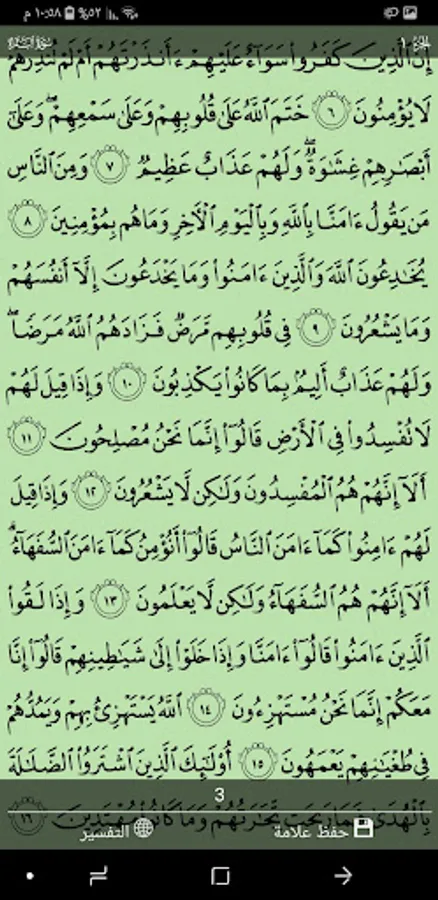 ١٠:٥٨ م ٥٢%
الجزء ١ سورة البقرة
إِنَّ ٱلَّذِينَ كَفَرُوا۟ سَوَآءٌ عَلَيْهِمْ ءَأَنذَرْتَهُمْ أَمْ لَمْ تُنذِرْهُمْ
لَا يُؤْمِنُونَ ٦ خَتَمَ ٱللَّهُ عَلَىٰ قُلُوبِهِمْ وَعَلَىٰ سَمْعِهِمْ ۖ وَعَلَىٰٓ
أَبْصَـٰرِهِمْ غِشَـٰوَةٌ ۖ وَلَهُمْ عَذَابٌ عَظِيمٌ ٧ وَمِنَ ٱلنَّاسِ
مَن يَقُولُ ءَامَنَّا بِٱللَّهِ وَبِٱلْيَوْمِ ٱلْـَٔاخِرِ وَمَا هُم بِمُؤْمِنِينَ ٨
يُخَـٰدِعُونَ ٱللَّهَ وَٱلَّذِينَ ءَامَنُوا۟ وَمَا يَخْدَعُونَ إِلَّآ أَنفُسَهُمْ
وَمَا يَشْعُرُونَ ٩ فِى قُلُوبِهِم مَّرَضٌ فَزَادَهُمُ ٱللَّهُ مَرَضًا ۖ
وَلَهُمْ عَذَابٌ أَلِيمٌۢ بِمَا كَانُوا۟ يَكْذِبُونَ ١٠ وَإِذَا قِيلَ لَهُمْ
لَا تُفْسِدُوا۟ فِى ٱلْأَرْضِ قَالُوٓا۟ إِنَّمَا نَحْنُ مُصْلِحُونَ ١١
أَلَآ إِنَّهُمْ هُمُ ٱلْمُفْسِدُونَ وَلَـٰكِن لَّا يَشْعُرُونَ ١٢ وَإِذَا قِيلَ
لَهُمْ ءَامِنُوا۟ كَمَآ ءَامَنَ ٱلنَّاسُ قَالُوٓا۟ أَنُؤْمِنُ كَمَآ ءَامَنَ ٱلسُّفَهَآءُ ۗ
أَلَآ إِنَّهُمْ هُمُ ٱلسُّفَهَآءُ وَلَـٰكِن لَّا يَعْلَمُونَ ١٣ وَإِذَا لَقُوا۟
ٱلَّذِينَ ءَامَنُوا۟ قَالُوٓا۟ ءَامَنَّا وَإِذَا خَلَوْا۟ إِلَىٰ شَيَـٰطِينِهِمْ قَالُوٓا۟ إِنَّا
مَعَكُمْ إِنَّمَا نَحْنُ مُسْتَهْزِءُونَ ١٤ ٱللَّهُ يَسْتَهْزِئُ بِهِمْ وَيَمُدُّهُمْ
فِى طُغْيَـٰنِهِمْ يَعْمَهُونَ ١٥ أُو۟لَـٰٓئِكَ ٱلَّذِينَ ٱشْتَرَوُا۟ ٱلضَّلَـٰلَةَ
3
بِٱلْهُدَىٰ فَمَا رَبِحَت تِّجَـٰرَتُهُمْ وَمَا كَانُوا۟ مُهْتَدِينَ ١٦
حفظ علامة التفسير